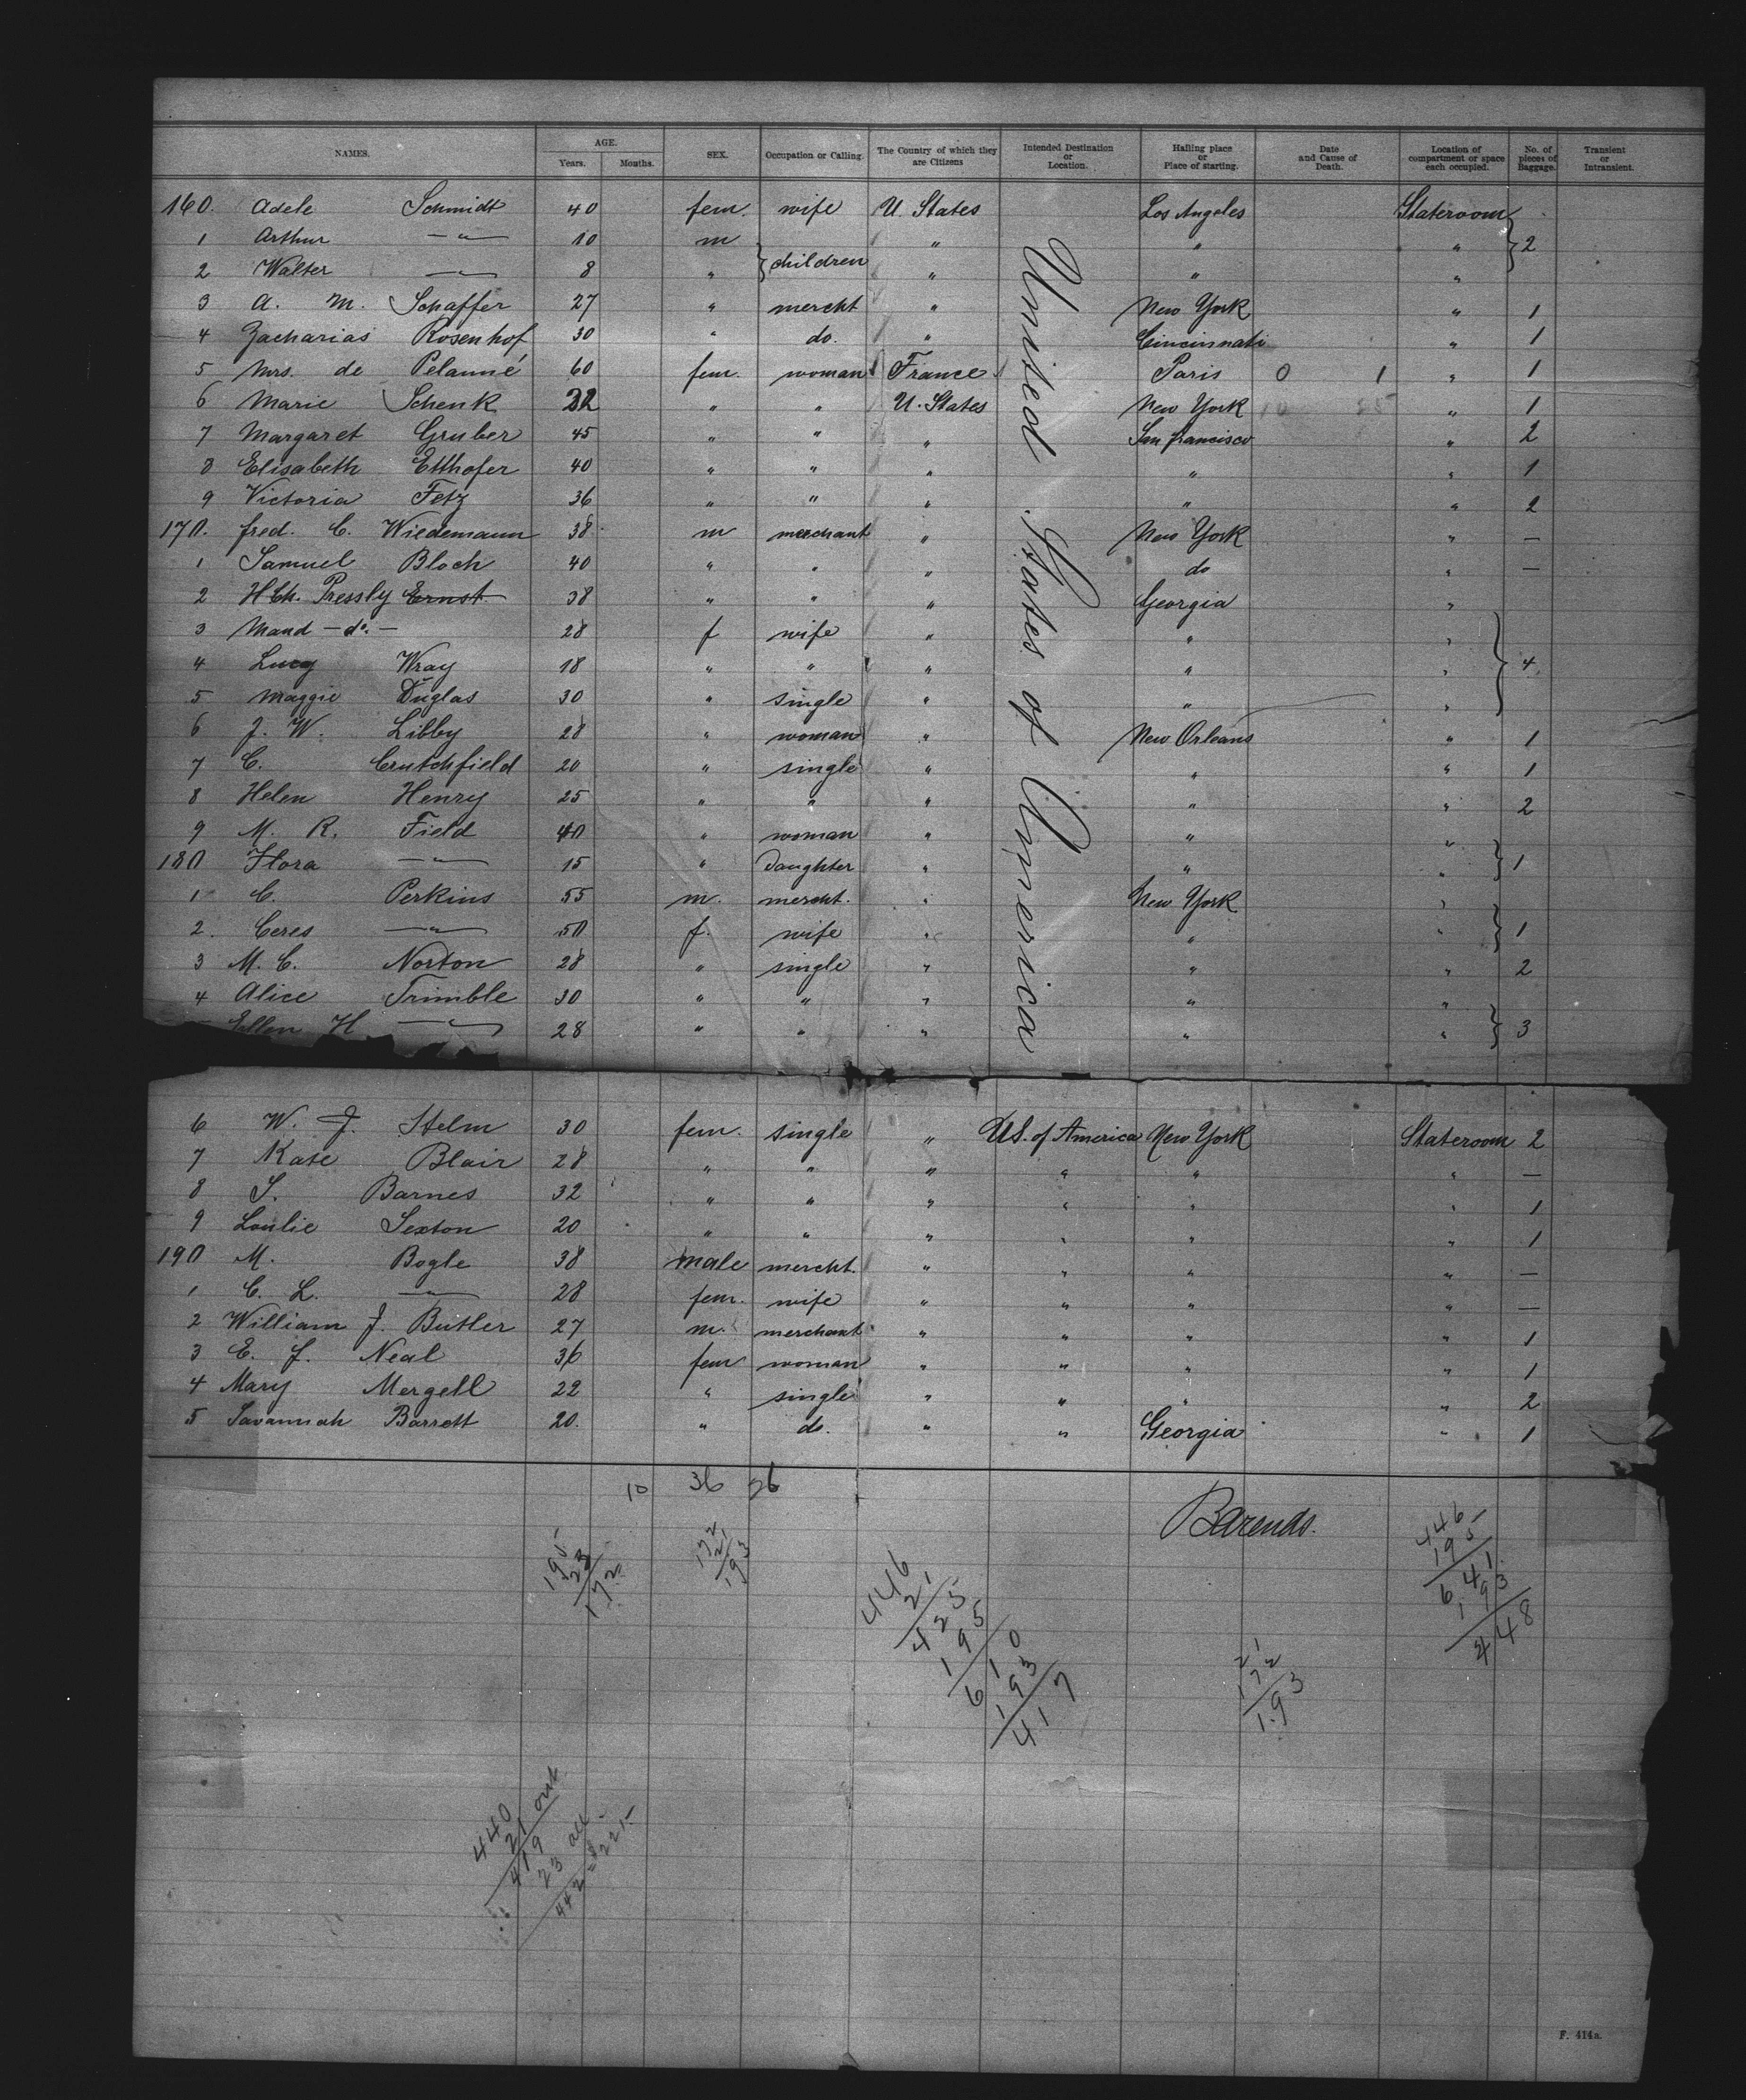 NAMES. AGE. Years. Months. SEX. Occupation or Calling. The Country of which they are Citizens Intended Destination or Location. Hailing place or Place of starting. Date and Cause of Death. Location of compartment or space each occupied. No. of pieces of Baggage. Transient or Intransient.
160. Adele Schmidt 40 fem. wife U. States Los Angeles Stateroom
1 Arthur —"— 10 m " " "
2 Walter —"— 8 " } children " " " } 2
3 A. M. Schaffer 27 " mercht " New York " 1
4 Zacharias Rosenhof 30 " do. " Cincinnati " 1
5 Mrs. de Pelanné 60 fem. woman France Paris 0 1 " 1
6 Marie Schenk 32 " " U. States New York " 1
7 Margaret Gruber 45 " " " San francisco " 2
8 Elisabeth Etthofer 40 " " " " " 1
9 Victoria Fetz 36 " " " " " 2
170. fred. C. Wiedemann 38 m merchant " New York " —
1 Samuel Bloch 40 " " " do " —
2 HCh. Pressly Ernst 38 " " " Georgia "
3 Maud — do. — 28 f wife " " "
4 Lucy Wray 18 " " " " " } 4
5 Maggie Duglas 30 " single " " "
6 J. W. Libby 28 " woman " New Orleans " 1
7 C. Crutchfield 20 " single " " " 1
8 Helen Henry 25 " " " " " 2
9 M. R. Field 40 " woman " " "
180 Flora —"— 15 " Daughter " " " } 1
1 C. Perkins 55 m. mercht. " New York "
2. Ceres —"— 50 f. wife " " " } 1
3 M. C. Norton 28 " single " " " 2
4 Alice Trimble 30 " " " " "
Ellen H —"— 28 " " " " " } 3
United States of America
6 W. J. Stelm 30 fem. single " U.S. of America New York Stateroom 2
7 Kate Blair 28 " " " " " " —
8 S. Barnes 32 " " " " " " 1
9 Loulie Sexton 20 " " " " " " 1
190 M. Bogle 38 male mercht. " " " " —
1 C. L. —"— 28 fem. wife " " " " —
2 William J. Butler 27 m. merchant " " " " 1
3 E. J. Neal 36 fem woman " " " " 1
4 Mary Mergell 22 " single " " " " 2
5 Savannah Barrett 20. " do. " " Georgia " 1
10 36 26
Barends.
195
23
172
172
21
193
446
21
425
195
610
193
417
21
172
193
446
195
641
193
448
440
21 out
419
23 all
442 = 221
F. 414a.